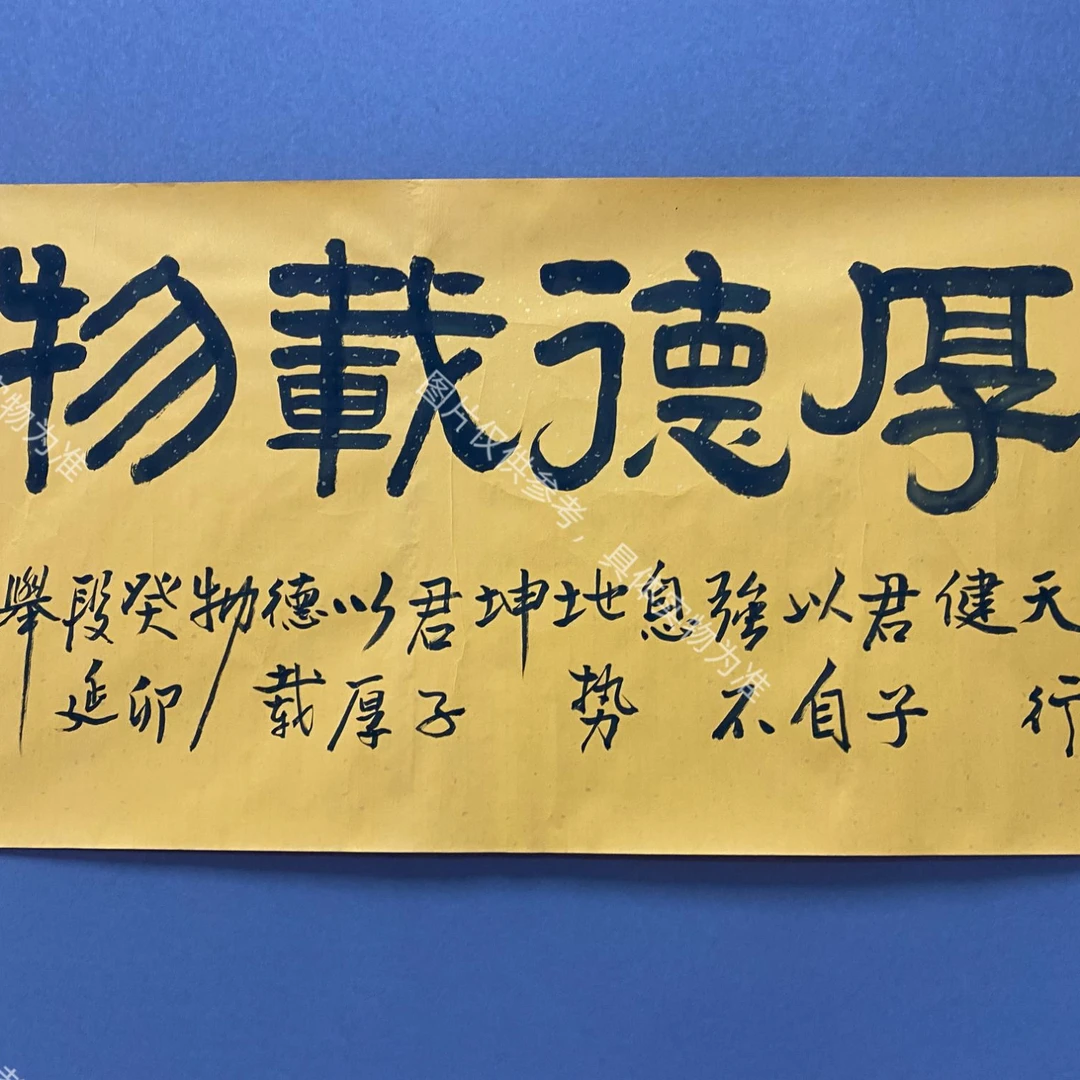 厚德載物
天行
健
君子
以自
強不
息
地势
坤
君子
以厚
德载
物
癸卯
段延
舉
图片仅供参考，具体实物为准
物为准